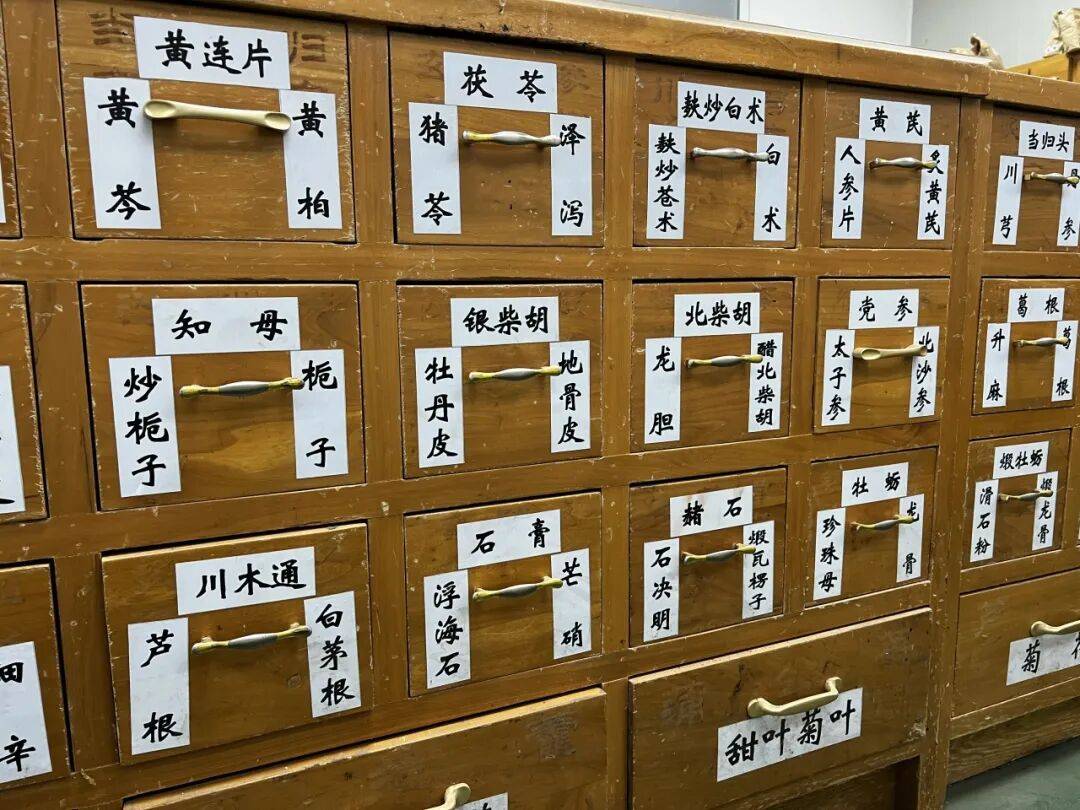 黄连片
黄芩
黄柏
茯苓
猪苓
泽泻
麸炒白术
麸炒苍术
白术
黄芪
人参片
炙黄芪
当归头
川芎
丹参
知母
炒栀子
栀子
银柴胡
牡丹皮
地骨皮
北柴胡
龙胆
醋北柴胡
党参
太子参
北沙参
葛根
升麻
葛根
川木通
芦根
白茅根
石膏
浮海石
芒硝
赭石
石决明
煅瓦楞子
牡蛎
珍珠母
龙骨
煅牡蛎
滑石粉
煅龙骨
细辛
甜叶菊叶
菊